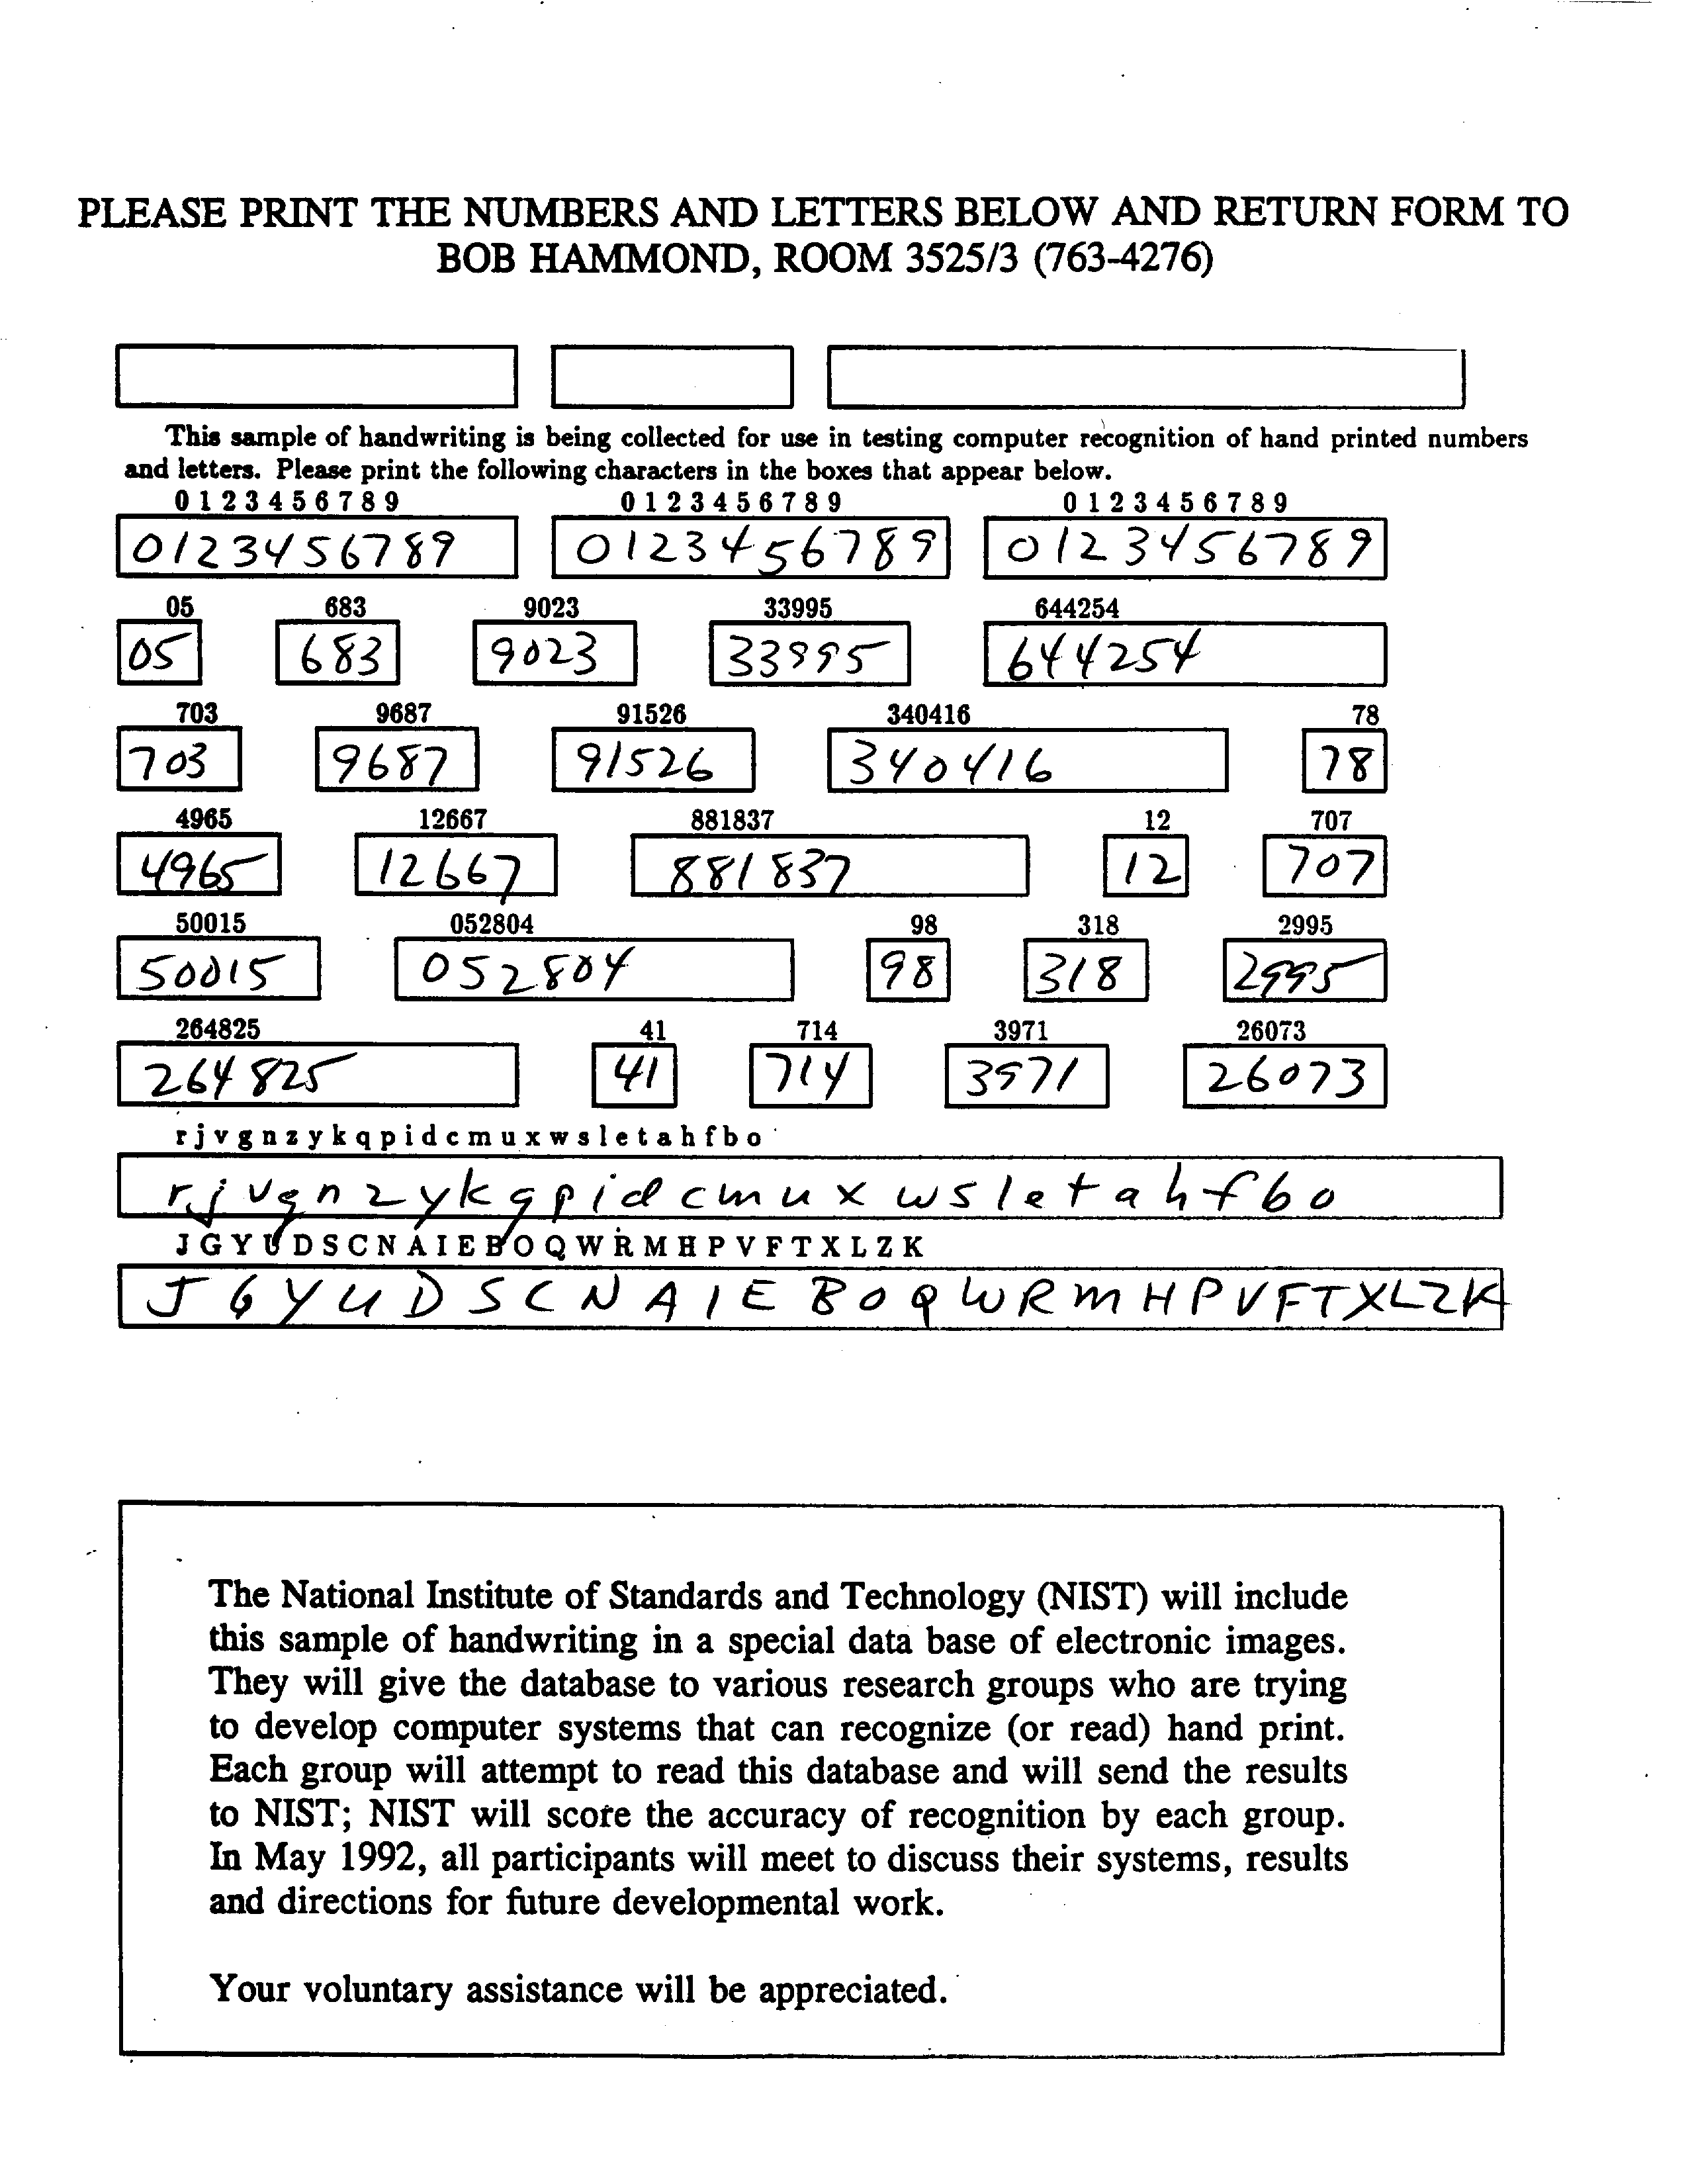 PLEASE PRINT THE NUMBERS AND LETTERS BELOW AND RETURN FORM TO
BOB HAMMOND, ROOM 3525/3 (763-4276)
This sample of handwriting is being collected for use in testing computer recognition of hand printed numbers
and letters. Please print the following characters in the boxes that appear below.
0 1 2 3 4 5 6 7 8 9 0 1 2 3 4 5 6 7 8 9 0 1 2 3 4 5 6 7 8 9
0123456789 0123456789 0123456789
05 683 9023 33995 644254
05 683 9023 33995 644254
703 9687 91526 340416 78
703 9687 91526 340416 78
4965 12667 881837 12 707
4965 12667 881837 12 707
50015 052804 98 318 2995
50015 052804 98 318 2995
264825 41 714 3971 26073
264825 41 714 3971 26073
r j v g n z y k q p i d c m u x w s l e t a h f b o
r j v g n z y k q p i d c m u x w s l e t a h f b o
J G Y U D S C N A I E B O Q W R M H P V F T X L Z K
J G Y U D S C N A I E B O Q W R M H P V F T X L Z K
The National Institute of Standards and Technology (NIST) will include
this sample of handwriting in a special data base of electronic images.
They will give the database to various research groups who are trying
to develop computer systems that can recognize (or read) hand print.
Each group will attempt to read this database and will send the results
to NIST; NIST will score the accuracy of recognition by each group.
In May 1992, all participants will meet to discuss their systems, results
and directions for future developmental work.
Your voluntary assistance will be appreciated.